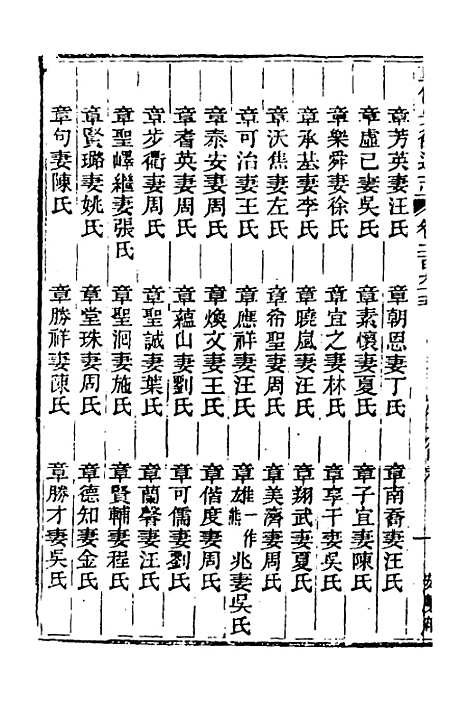 章芳英妻汪氏　章朝恩妻丁氏　章南喬妻汪氏
章虛已妻吳氏　章素懷妻夏氏　章子宜妻陳氏
章樂舜妻徐氏　章宜之妻林氏　章享干妻吳氏
章承基妻李氏　章曉嵐妻汪氏　章翔武妻夏氏
章沃焦妻左氏　章希聖妻周氏　章美濟妻周氏
章可治妻王氏　章應祥妻汪氏　章雄一作熊兆妻吳氏
章泰安妻周氏　章煥文妻王氏　章偕度妻周氏
章耆英妻周氏　章蘊山妻劉氏　章可儒妻劉氏
章步衢妻周氏　章聖誠妻葉氏　章蘭馨妻汪氏
章聖嶧繼妻張氏　章聖泂妻施氏　章賢輔妻程氏
章賢璐妻姚氏　章堂珠妻周氏　章德知妻金氏
章句妻陳氏　章勝祥妻陳氏　章勝才妻吳氏